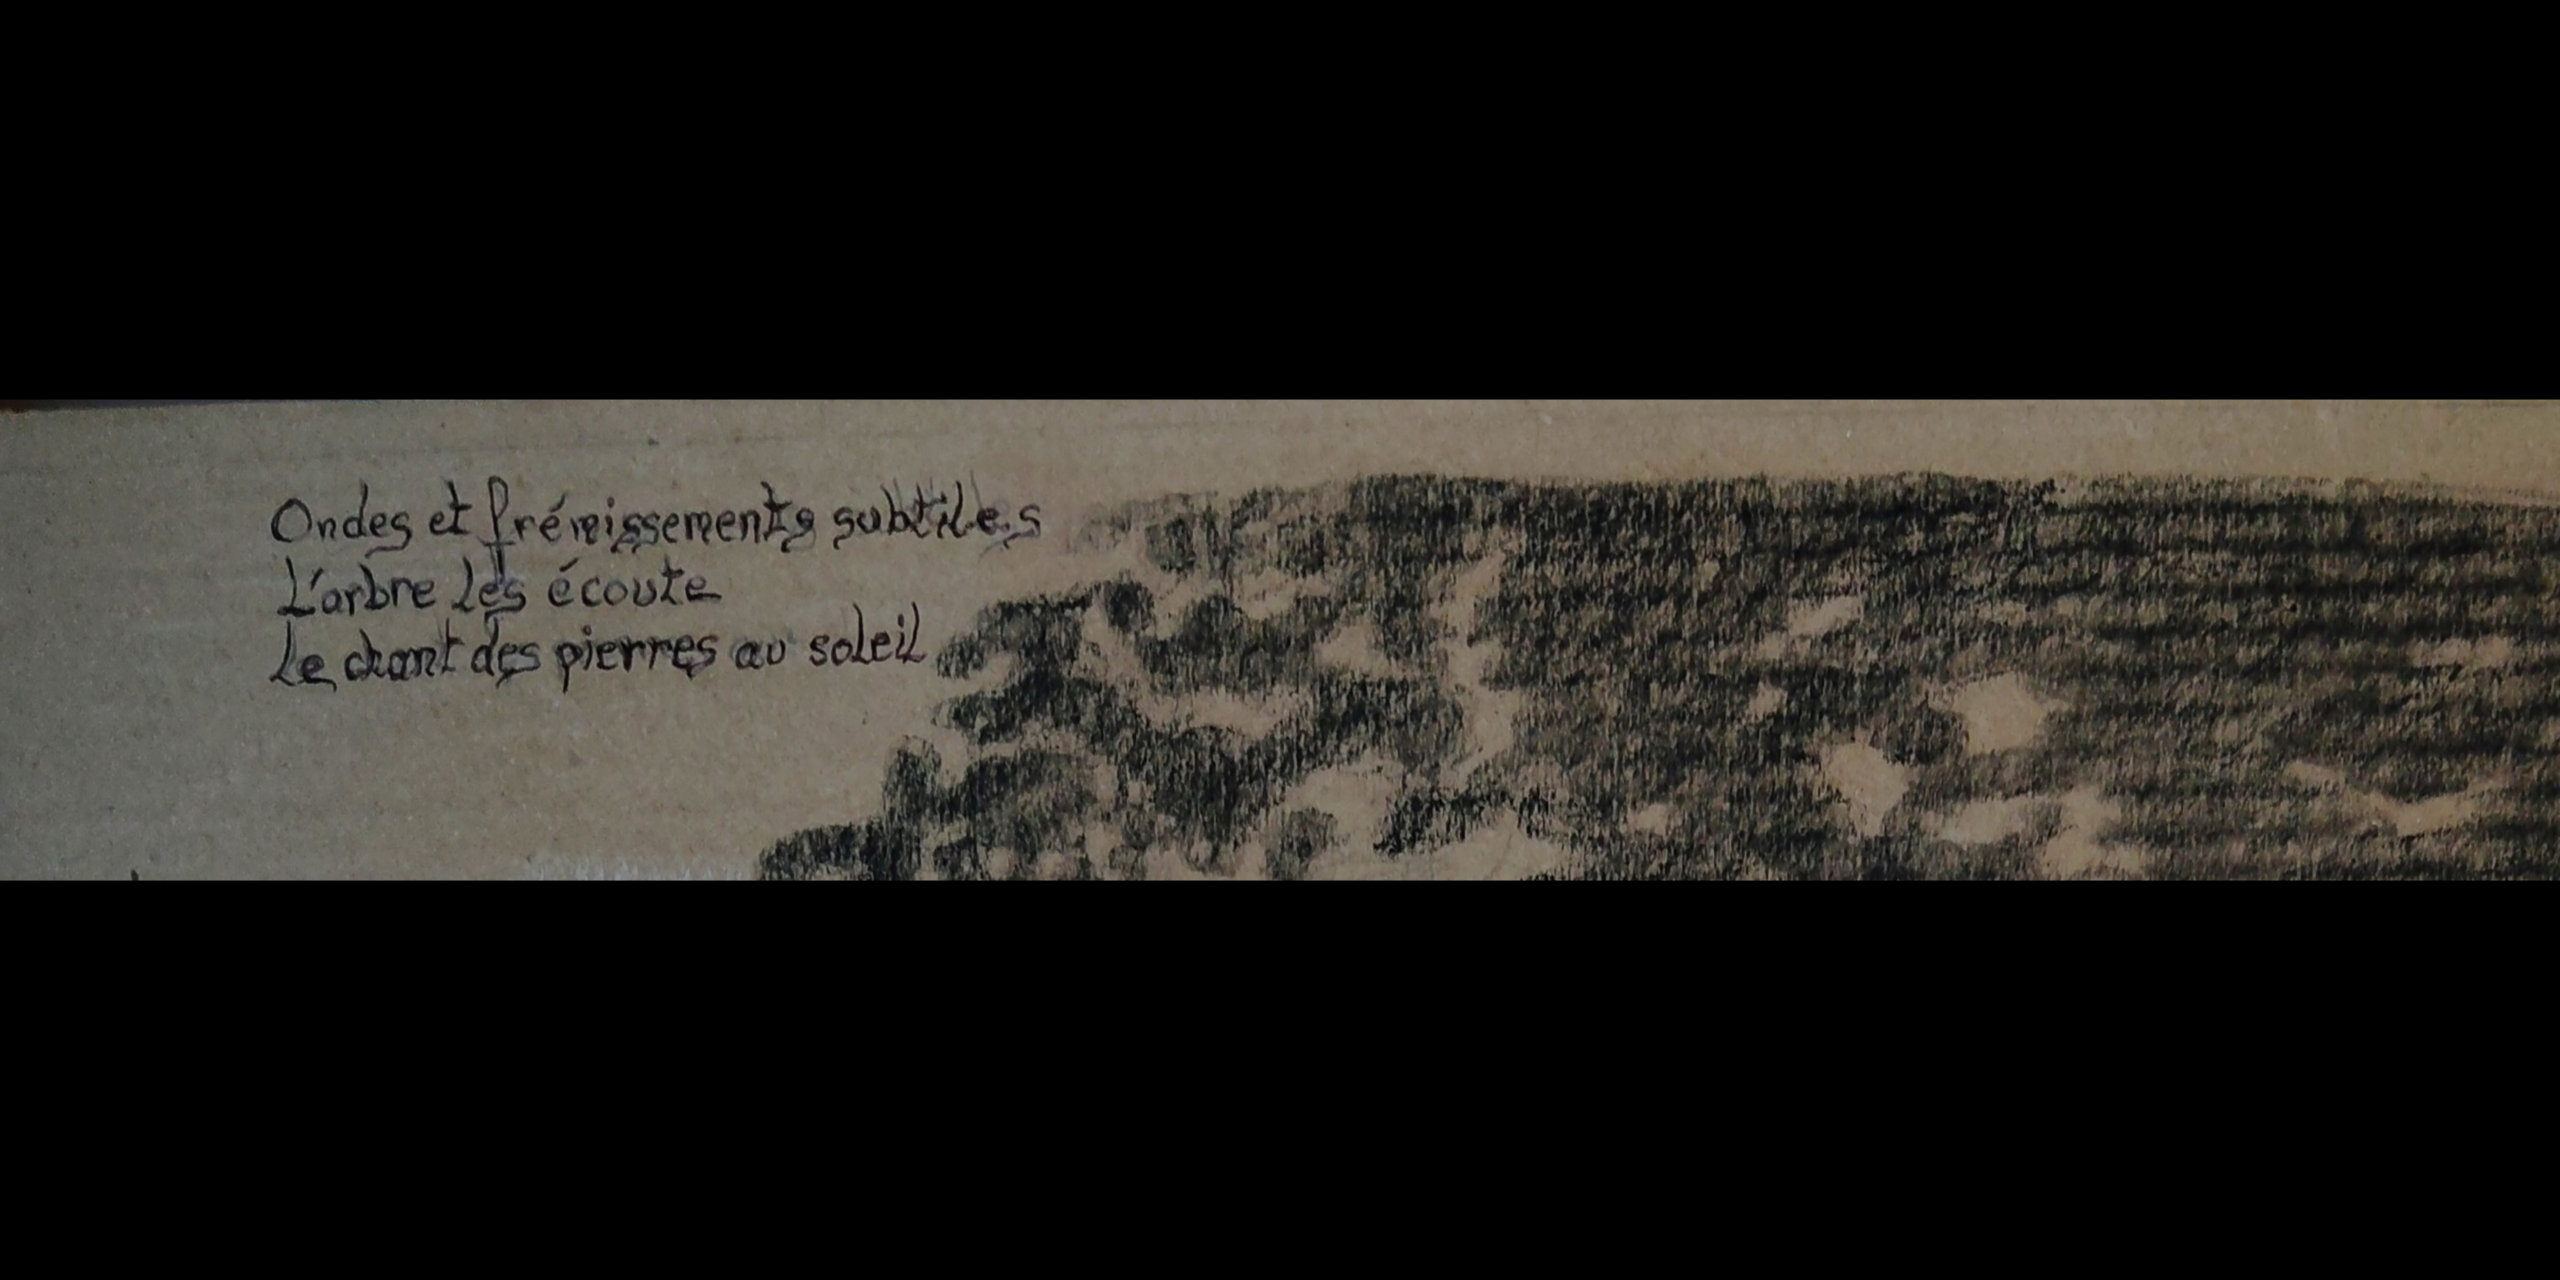 Ondes et frémissements subtiles
L'arbre les écoute
Le chant des pierres au soleil